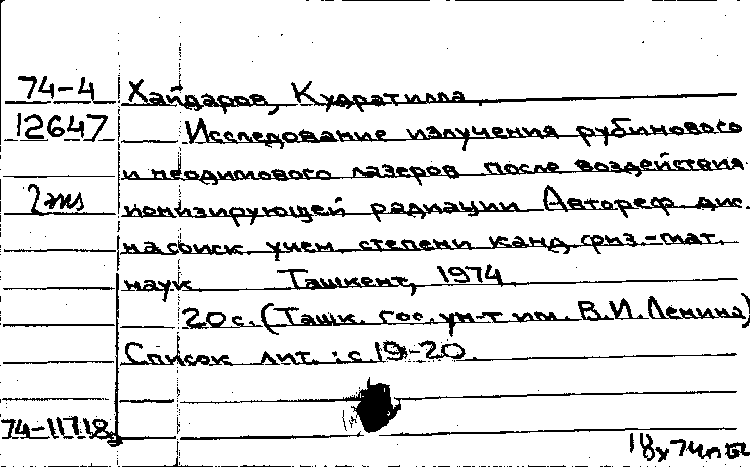 74-4 Хайдаров, Кудратилла.
12647 Исследование излучения рубинового
и неодимового лазеров после воздействия
2 экз ионизирующей радиации Автореф. дис.
на соиск. учен. степени канд. физ.-мат.
наук. Ташкент, 1974.
20 с. (Ташк. гос. ун-т им. В.И. Ленина)
Список лит.: с 19-20.
74-11718